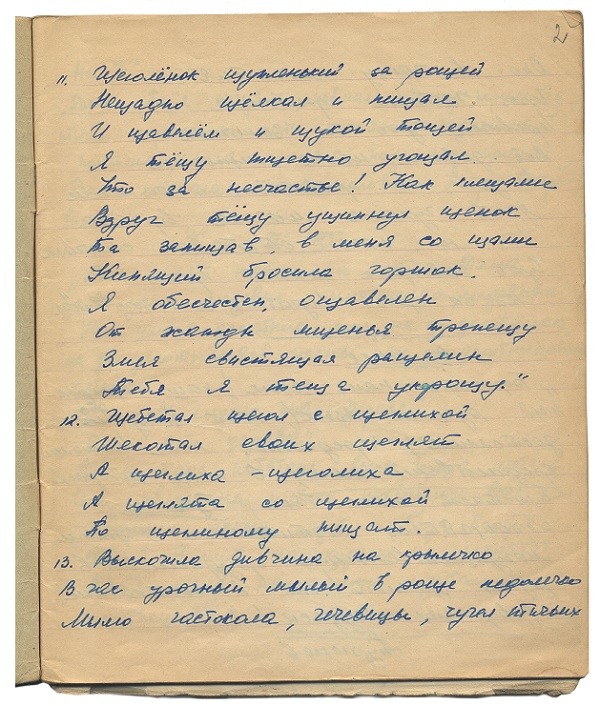 2
11. Щеголёнок щупленький за рощей
Нещадно щёлкал и пищал.
И щавелём и щукой тощей
Я тёщу тщетно угощал.
Что за несчастье! Как клещами
Вдруг тёщу ущипнул щенок
Та запищав, в меня со щами
Кипящий бросила горшок.
Я обесчещен, ощавелен
От жажды мщенья трепещу
Змея свистящая расщелин
Тебя я теща укрощу"
12. Щебетал щегол с щеглихой
Щекотал своих щеглят
А щеглиха - щеголиха
А щеглята со щеглихой
По щеглиному пищат.
13. Выскочила дивчина на крылечко
В час урочный милый в роще недалечко
Мимо частокола, чечевицы, чучел птичьих